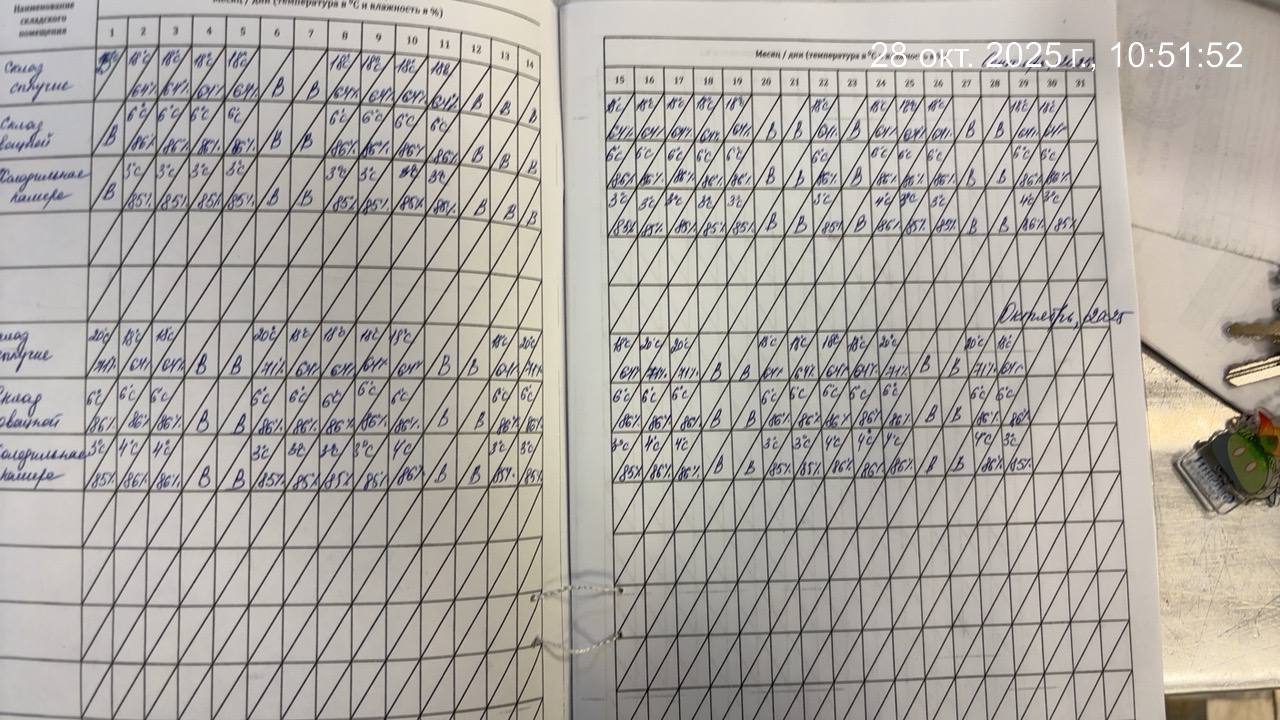 Наименование складского помещения
Месяц / дни (температура в °С и влажность в %)
1 2 3 4 5 6 7 8 9 10 11 12 13 14
Склад
18°С 18°С 18°С 18°С 18°С 18°С 18°С
64% 64% 64% 64% В В 64% 64% 64% 64% В В В
Склад
6°С 6°С 6°С 6°С 6°С 6°С 6°С 6°С
В 86% 86% 86% 86% В В 86% 86% 86% 86% В В В
Холодильная камера
3°С 3°С 3°С 3°С 3°С 3°С 3°С
В 85% 85% 85% 85% В В 85% 85% 85% 85% В В В
20°С 18°С 18°С 20°С 18°С 18°С 18°С 18°С 18°С 20°С
71% 64% 64% В В 71% 64% 64% 64% 64% В В 64% 71%
6°С 6°С 6°С 6°С 6°С 6°С 6°С 6°С 6°С 6°С
86% 86% 86% В В 86% 86% 86% 86% 86% В В 86% 86%
камера
3°С 4°С 4°С 3°С 3°С 3°С 3°С 4°С 3°С 3°С
85% 86% 86% В В 85% 85% 85% 85% 86% В В 85% 85%
28 окт. 2025 г., 10:51:52
Месяц / дни (температура в °С
15 16 17 18 19 20 21 22 23 24 25 26 27 28 29 30 31
18°С 18°С 18°С 18°С 18°С 18°С 18°С 18°С 18°С 18°С 18°С
64% 64% 64% 64% 64% В В 64% В 64% 64% 64% В В 64% 64%
6°С 6°С 6°С 6°С 6°С 6°С 6°С 6°С 6°С 6°С 6°С
86% 86% 86% 86% 86% В В 86% В 86% 86% 86% В В 86% 86%
3°С 3°С 3°С 3°С 3°С 3°С 4°С 3°С 3°С 4°С 3°С
85% 85% 85% 85% 85% В В 85% В 86% 85% 85% В В 86% 85%
Октябрь, 2025
18°С 20°С 20°С 18°С 18°С 18°С 18°С 20°С 20°С 18°С
64% 71% 71% В В 64% 64% 64% 64% 71% В В 71% 64%
6°С 6°С 6°С 6°С 6°С 6°С 6°С 6°С 6°С 6°С
86% 86% 86% В В 86% 86% 86% 86% 86% В В 86% 86%
3°С 4°С 4°С 3°С 3°С 4°С 4°С 4°С 4°С 3°С
85% 86% 86% В В 85% 85% 86% 86% 86% В В 86% 85%